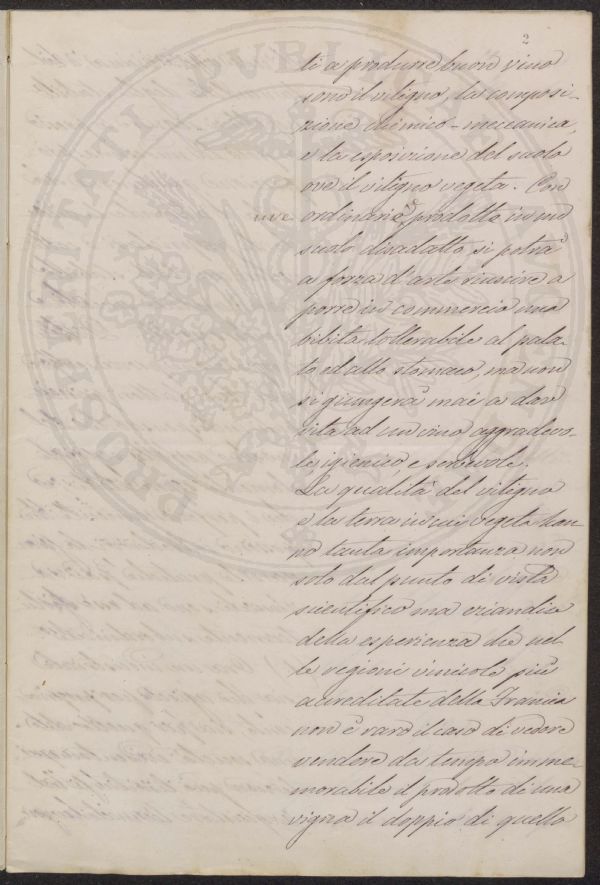 2
ti a produrre buon vino
sono il vitigno, la composi-
zione chimico-meccanica,
e la esposizione del suolo
ove il vitigno vegeta. Con
uve ordinarie, prodotte in un
suolo disadatto, si potrà
a forza d'arte riuscire a
porre in commercio una
bibita tollerabile al pala-
to ed allo stomaco, ma non
si giungerà mai a dar
vita ad un vino aggradevo-
le, igienico, e serbevole.
La qualità del vitigno
e la terra in cui vegeta han-
no tanta importanza non
solo dal punto di vista
scientifico ma eziandio
della esperienza che nel-
le regioni vinicole più
accreditate della Francia
non è raro il caso di vedere
vendere da tempo imme-
morabile il prodotto di una
vigna il doppio di quello
PROSPERITATI PVBLICAE